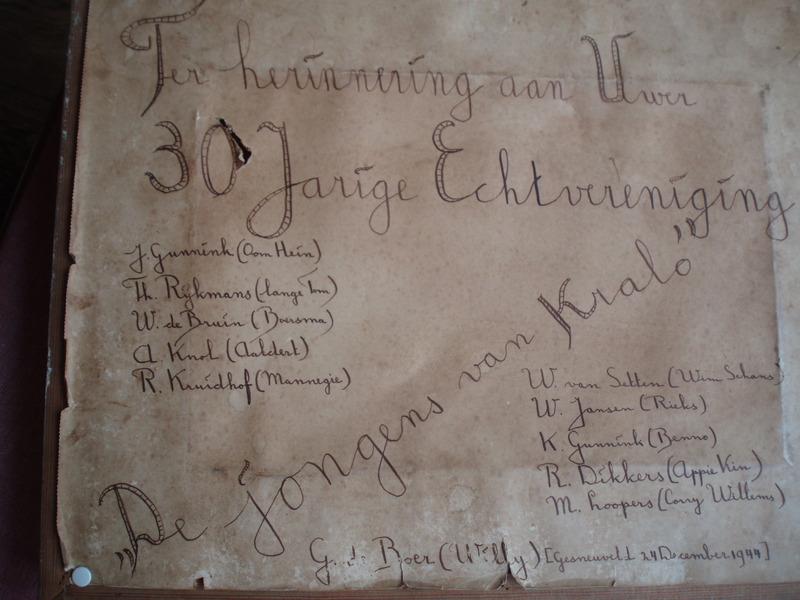 Ter herinnering aan Uwer
30 Jarige Echtvereniging
J. Gunnink (Oom Hein)
Th. Rijkmans (lange Tom)
W. de Bruin (Boersma)
A. Knol (Aaldert)
R. Kruidhof (Mannegie)
„De jongens van Kralo”
W. van Setten (Wim Schans)
W. Jansen (Rieks)
K. Gunnink (Benno)
R. Dikkers (Appie Kin)
M. Loopers (Corry Willems)
G. de Boer (Willy) [Gesneuveld 24 December 1944]